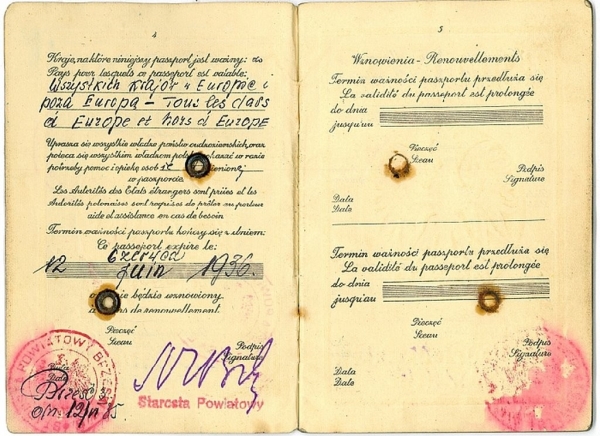 4
Kraje, na które niniejszy paszport jest ważny:
Pays pour lesquels ce passeport est valable:
Wszystkich krajów w Europie i
poza Europą – Tous les
d Europe et hors d Europe
Uprasza się wszystkie władze państw cudzoziemskich, zaś
poleca się wszystkim władzom w razie
potrzeby pomoc i opiekę
w paszporcie.
Les Autorités des Etats étrangers sont priées et les
Autorités polonaises sont requises de prêter au porteur
aide et assistance en cas de besoin
Termin ważności paszportu kończy się z dniem:
Ce passeport expire le:
12 Czerwca
Juin 1936.
będzie wznowiony
de renouvellement.
Pieczęć
Sceau
Podpis
Signature
POWIATOWY
Data
Date
Brześć
12/VI 35
Starosta Powiatowy
5
Wznowienia - Renouvellements
Termin ważności paszportu przedłuża się
La validité du passeport est prolongée
do dnia
jusqu'au
Pieczęć
Sceau
Podpis
Signature
Data
Date
Termin ważności paszportu przedłuża się
La validité du passeport est prolongée
do dnia
jusqu'au
Pieczęć
Sceau
Podpis
Signature
Data
Date